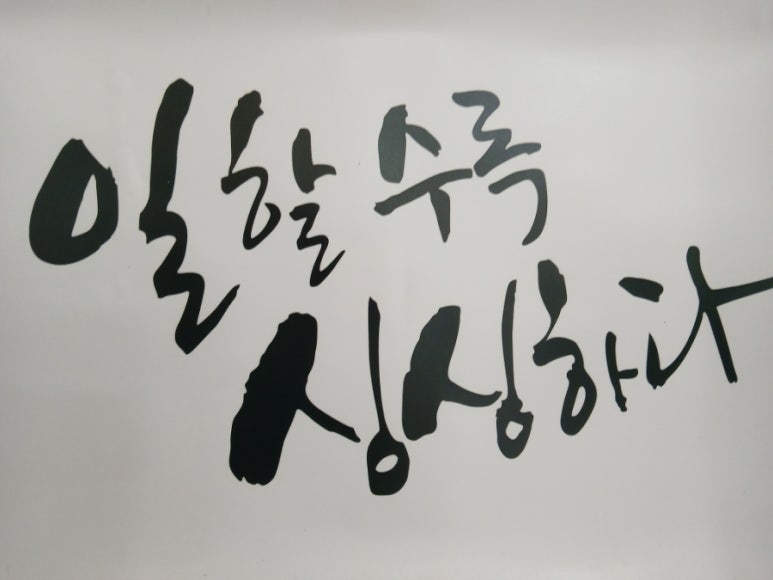 일할수록
싱싱하다